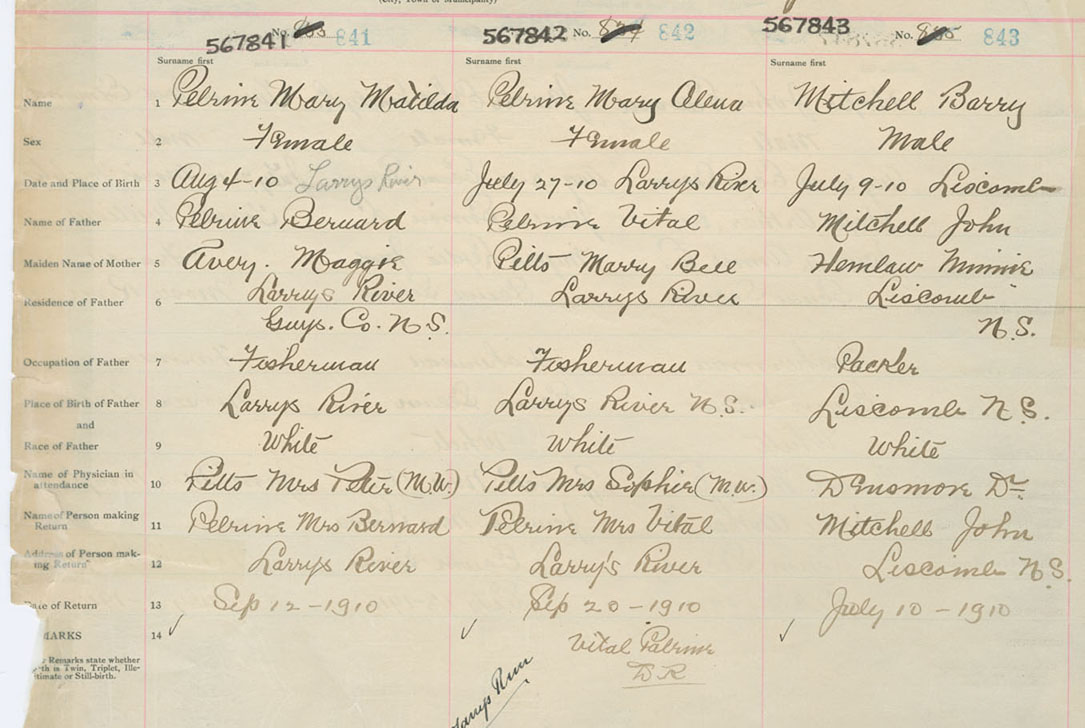 (City, Town or Municipality)
567841 No. 841 567842 No. 842 567843 No. 843
Surname first Surname first Surname first
Name 1 Pelrine Mary Matilda Pelrine Mary Alena Mitchell Barry
Sex 2 Female Female Male
Date and Place of Birth 3 Aug 4-10 Larrys River July 27-10 Larrys River July 9-10 Liscomb
Name of Father 4 Pelrine Bernard Pelrine Vital Mitchell John
Maiden Name of Mother 5 Avery. Maggie Pitts Marry Bell Hemlaw Minnie
Residence of Father 6 Larrys River Larrys River Liscomb
Guys. Co. N.S. N.S.
Occupation of Father 7 Fisherman Fisherman Packer
Place of Birth of Father 8 Larrys River Larrys River N.S. Liscomb N.S.
and
Race of Father 9 White White White
Name of Physician in
attendance 10 Pitts Mrs Peter (M.W.) Pitts Mrs Sophie (M.W.) Densmore Dr
Name of Person making
Return 11 Pelrine Mrs Bernard Pelrine Mrs Vital Mitchell John
Address of Person mak-
ing Return 12 Larrys River Larry's River Liscomb N.S.
Date of Return 13 Sep 12-1910 Sep 20-1910 July 10-1910
MARKS 14 Vital Pelrine
D R
Remarks state whether
is Twin, Triplet, Ille-
timate or Still-birth.